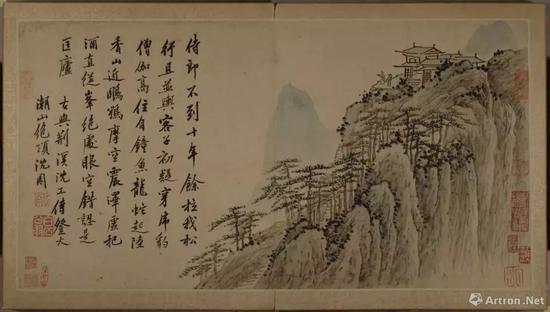 侍郎不到十年餘拉我松
行且並輿容與初疑穿虎豹
僧伽高住有鐘魚龍蛇起陸
香山近鵰鶚摩空震澤虛把
酒直從峯絕處眼空錯認是
匡廬
古與荆溪沈工侍登大
潮山絕頂沈周
Artron.Net